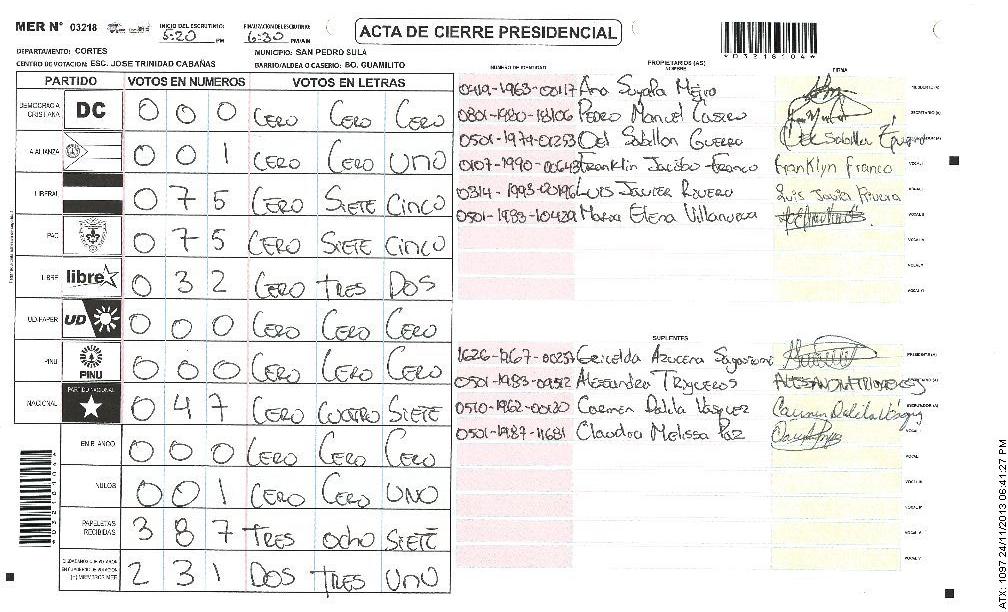 MER Nº 03218
INICIO DEL ESCRUTINIO: 5:20 PM
FINALIZACION DEL ESCRUTINIO: 6:30 PM/AM
ACTA DE CIERRE PRESIDENCIAL
*03218104*
DEPARTAMENTO: CORTES
MUNICIPIO: SAN PEDRO SULA
CENTRO DE VOTACION: ESC. JOSE TRINIDAD CABAÑAS
BARRIO/ALDEA O CASERIO: BO. GUAMILITO
PARTIDO VOTOS EN NUMEROS VOTOS EN LETRAS
DEMOCRACIA CRISTIANA DC 0 0 0 CERO CERO CERO
ALIANZA 0 0 1 CERO CERO UNO
LIBERAL 0 7 5 CERO SIETE CINCO
PAC 0 7 5 CERO SIETE CINCO
LIBRE libre 0 3 2 CERO TRES DOS
UD-FAPER UD 0 0 0 CERO CERO CERO
PINU PINU 0 0 0 CERO CERO CERO
NACIONAL PARTIDO NACIONAL 0 4 7 CERO CUATRO SIETE
EN BLANCO 0 0 0 CERO CERO CERO
NULOS 0 0 1 CERO CERO UNO
PAPELETAS RECIBIDAS 3 8 7 TRES OCHO SIETE
2 3 1 DOS TRES UNO
PROPIETARIOS (AS)
NUMERO DE IDENTIDAD NOMBRE FIRMA
Ana
0801-1980-18106 Pedro Manuel Castro SECRETARIO (A)
0501-1974-01253 Sabillon
0107-1990-00643 Franklin Jacobo Franco Franklyn Franco VOCAL I
0314-1993-00196 Luis Javier Rivera Luis Javier Rivera VOCAL II
0501-1983-10429 Maria Elena Villanueva VOCAL III
VOCAL IV
VOCAL V
VOCAL VI
SUPLENTES
Azucena PRESIDENTE (A)
0501-1983-09512 Alessandra Trigueros
0510-1962-00120 Carmen Dalila Vasquez Carmen Dalila
0501-1987-11681 Claudia Melissa Paz
ATX: 1097 24/11/2013 06:41:27 PM